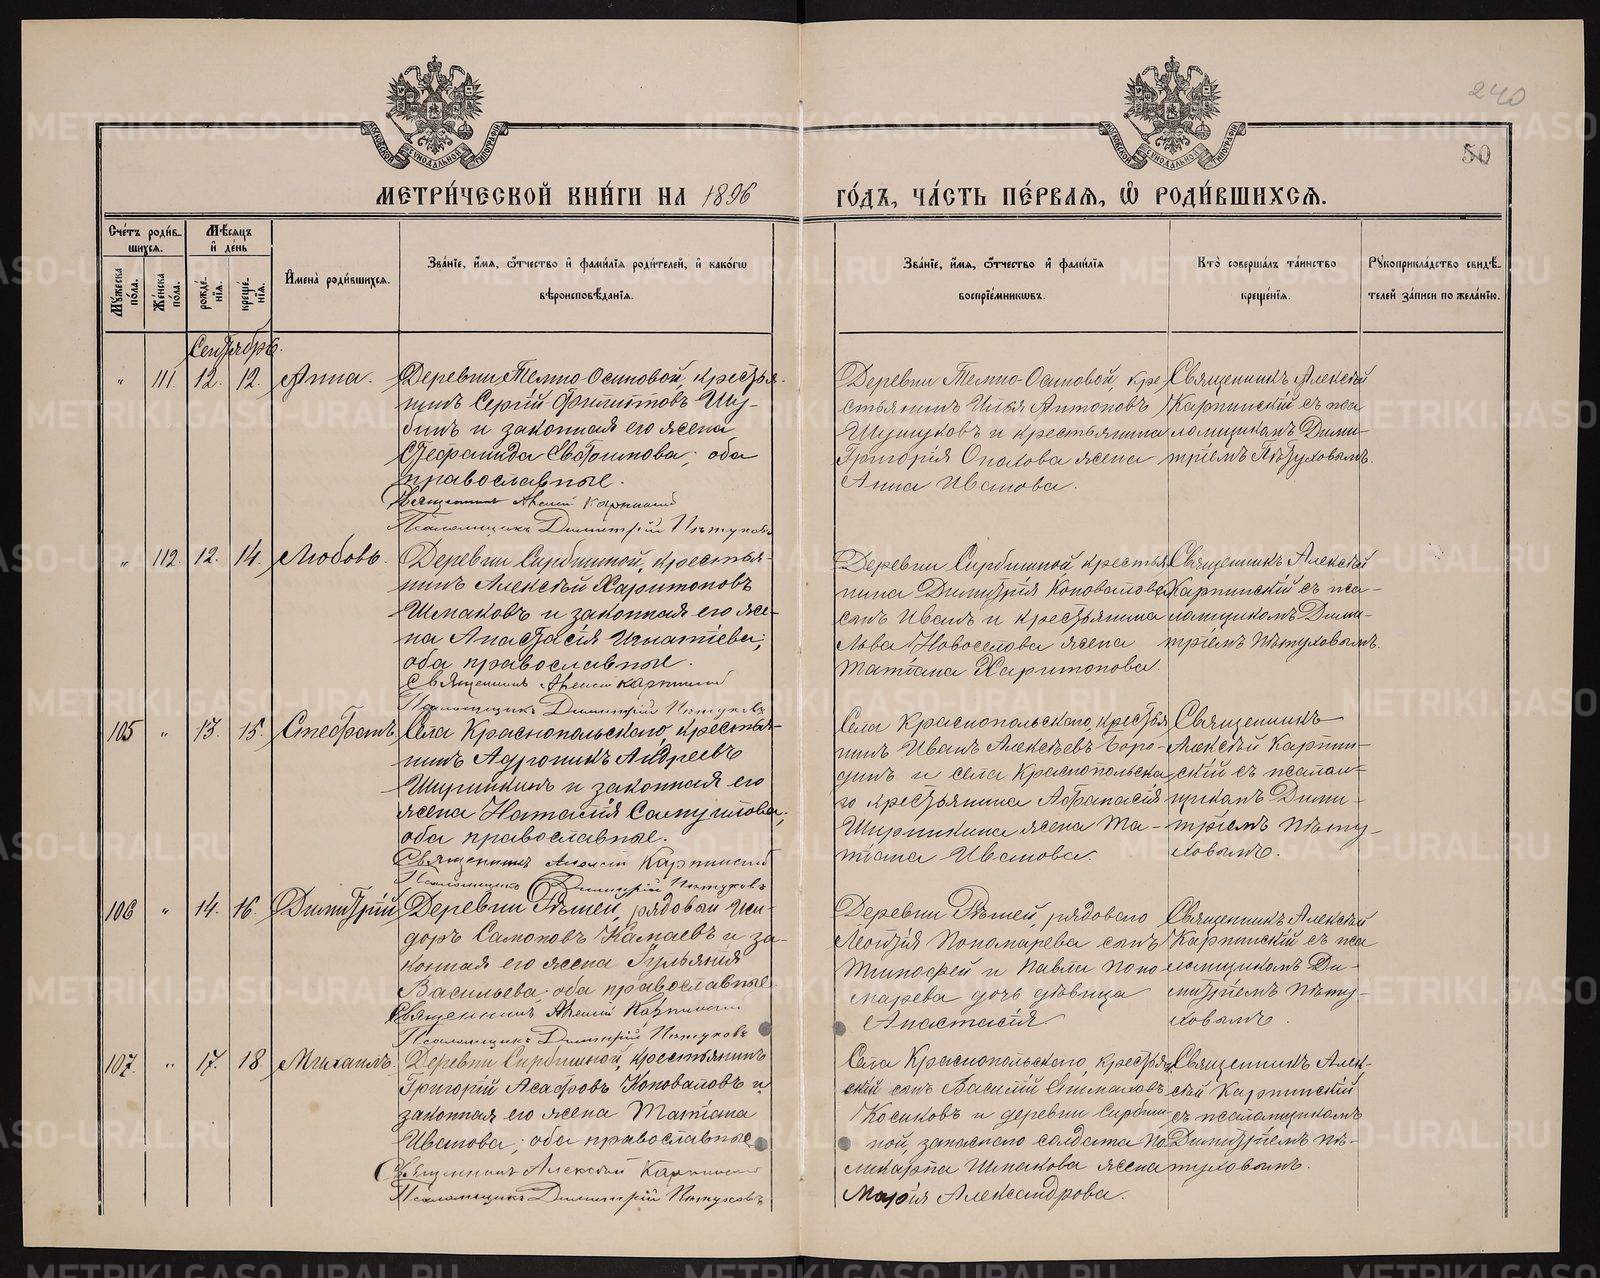 240
50
МОСКОВСКОЙ СѴНОДАЛЬНОЙ ТИПОГРАФІИ
МОСКОВСКОЙ СѴНОДАЛЬНОЙ ТИПОГРАФІИ
МЕТРИ́ЧЕСКОЙ КНИ́ГИ НА 1896
ГО́ДЪ, ЧА́СТЬ ПЕ́РВАЯ, Ѽ РОДИ́ВШИХСЯ.
Сче́тъ роди́в-
шихся.
Мѣ́сяцъ
и҆ де́нь
Мꙋ́жеска по́ла.
Же́нска по́ла.
рожде́-
нїя.
креще́-
нїя.
И҆мена̀ роди́вшихся.
Зва́нїе, и҆́мя, ѻ҆́тчество и҆ фами́лїя роди́телей, и҆ како́гѡ
вѣроисповѣ́данїя.
Зва́нїе, и҆́мя, ѻ҆́тчество и҆ фами́лїя
воспрїе́мникѡвъ.
Кто̀ соверша́лъ та́инство
креще́нїя.
Рꙋкоприкла́дство свидѣ́-
телей за́писи по жела́нїю.
Сентябрь.
" 111 12. 12. Анна.
Деревни Темно-Осиновой, крестья-
нинъ Сергій Филипповъ Шу-
бинъ и законная его жена
Стефанида Евфимова; оба
православные.
Священникъ Алексій Карпинскій
Псаломщикъ Димитрій Пѣтуховъ
Деревни Темно-Осиновой, кре-
стьянинъ Илья Антоновъ
и крестьянина
Григорія жена
Анна Иванова.
Священникъ Алексѣй
Карпинскій съ пса
ломщикомъ Дими-
тріемъ Пѣтуховымъ.
" 112 12. 14. Любовь.
Деревни Сирбишной, крестья-
нинъ Алексѣй Харитоновъ
Шпаковъ и законная его же-
на Анастасія Игнатіева;
оба православные.
Священникъ Алексій Карпинскій
Псаломщикъ Димитрій Пѣтуховъ
Деревни Сирбишной крестья
нина Димитрія Коновалова
сынъ Иванъ и крестьянина
Льва Новоселова жена
Татіана Харитонова.
Священникъ Алексѣй
Карпинскій съ пса-
ломщикомъ Дими-
тріемъ Пѣтуховымъ.
105 " 13. 15. Стефанъ.
Села Краснопольскаго, крестья-
нинъ Адроникъ Андреевъ
Ширинкинъ и законная его
жена Наталія Самуилова;
оба православные.
Священникъ Алексій Карпинскій
Псаломщикъ Димитрій Пѣтуховъ
Села Краснопольскаго, крестья
нинъ Иванъ Алексѣевъ Боро-
динъ и села Краснопольска
го крестьянина Афанасія
Ширинкина жена Та-
тіана Иванова.
Священникъ
Алексѣй Карпин-
скій съ псалом-
щикомъ Дими-
тріемъ Пѣту-
ховымъ.
106 " 14. 16. Димитрій
Деревни Рѣшей, рядовой Иси-
доръ Самоновъ Камаевъ и за-
конная его жена Гульянія
Васильева, оба православные
Священникъ Алексій Карпинскій
Псаломщикъ Димитрій Пѣтуховъ
Деревни Рѣшей, рядоваго
Леонтія Пономарева сынъ
Тимофей и Павла Поно
марева дочь дѣвица
Анастасія.
Священникъ Алексѣй
Карпинскій съ пса
ломщикомъ Ди-
митріемъ Пѣту-
ховымъ.
107. " 17. 18 Михаилъ.
Деревни Сирбишной, крестьянинъ
Григорій Асафовъ Коноваловъ и
законная его жена Татіана
Иванова; оба православные
Священникъ Алексѣй Карпинскій
Псаломщикъ Димитрій Пѣтуховъ
Села Краснопольскаго, крестьян
скій сынъ Василій
Косиковъ и деревни Сирбиш-
ной, запаснаго солдата По
ликарпа Шпакова жена
Марія Александрова.
Священникъ Алек-
сѣй Карпинскій
съ псаломщикомъ
Димитріемъ Пѣ-
туховымъ.
METRIKI.GASO-URAL.RU